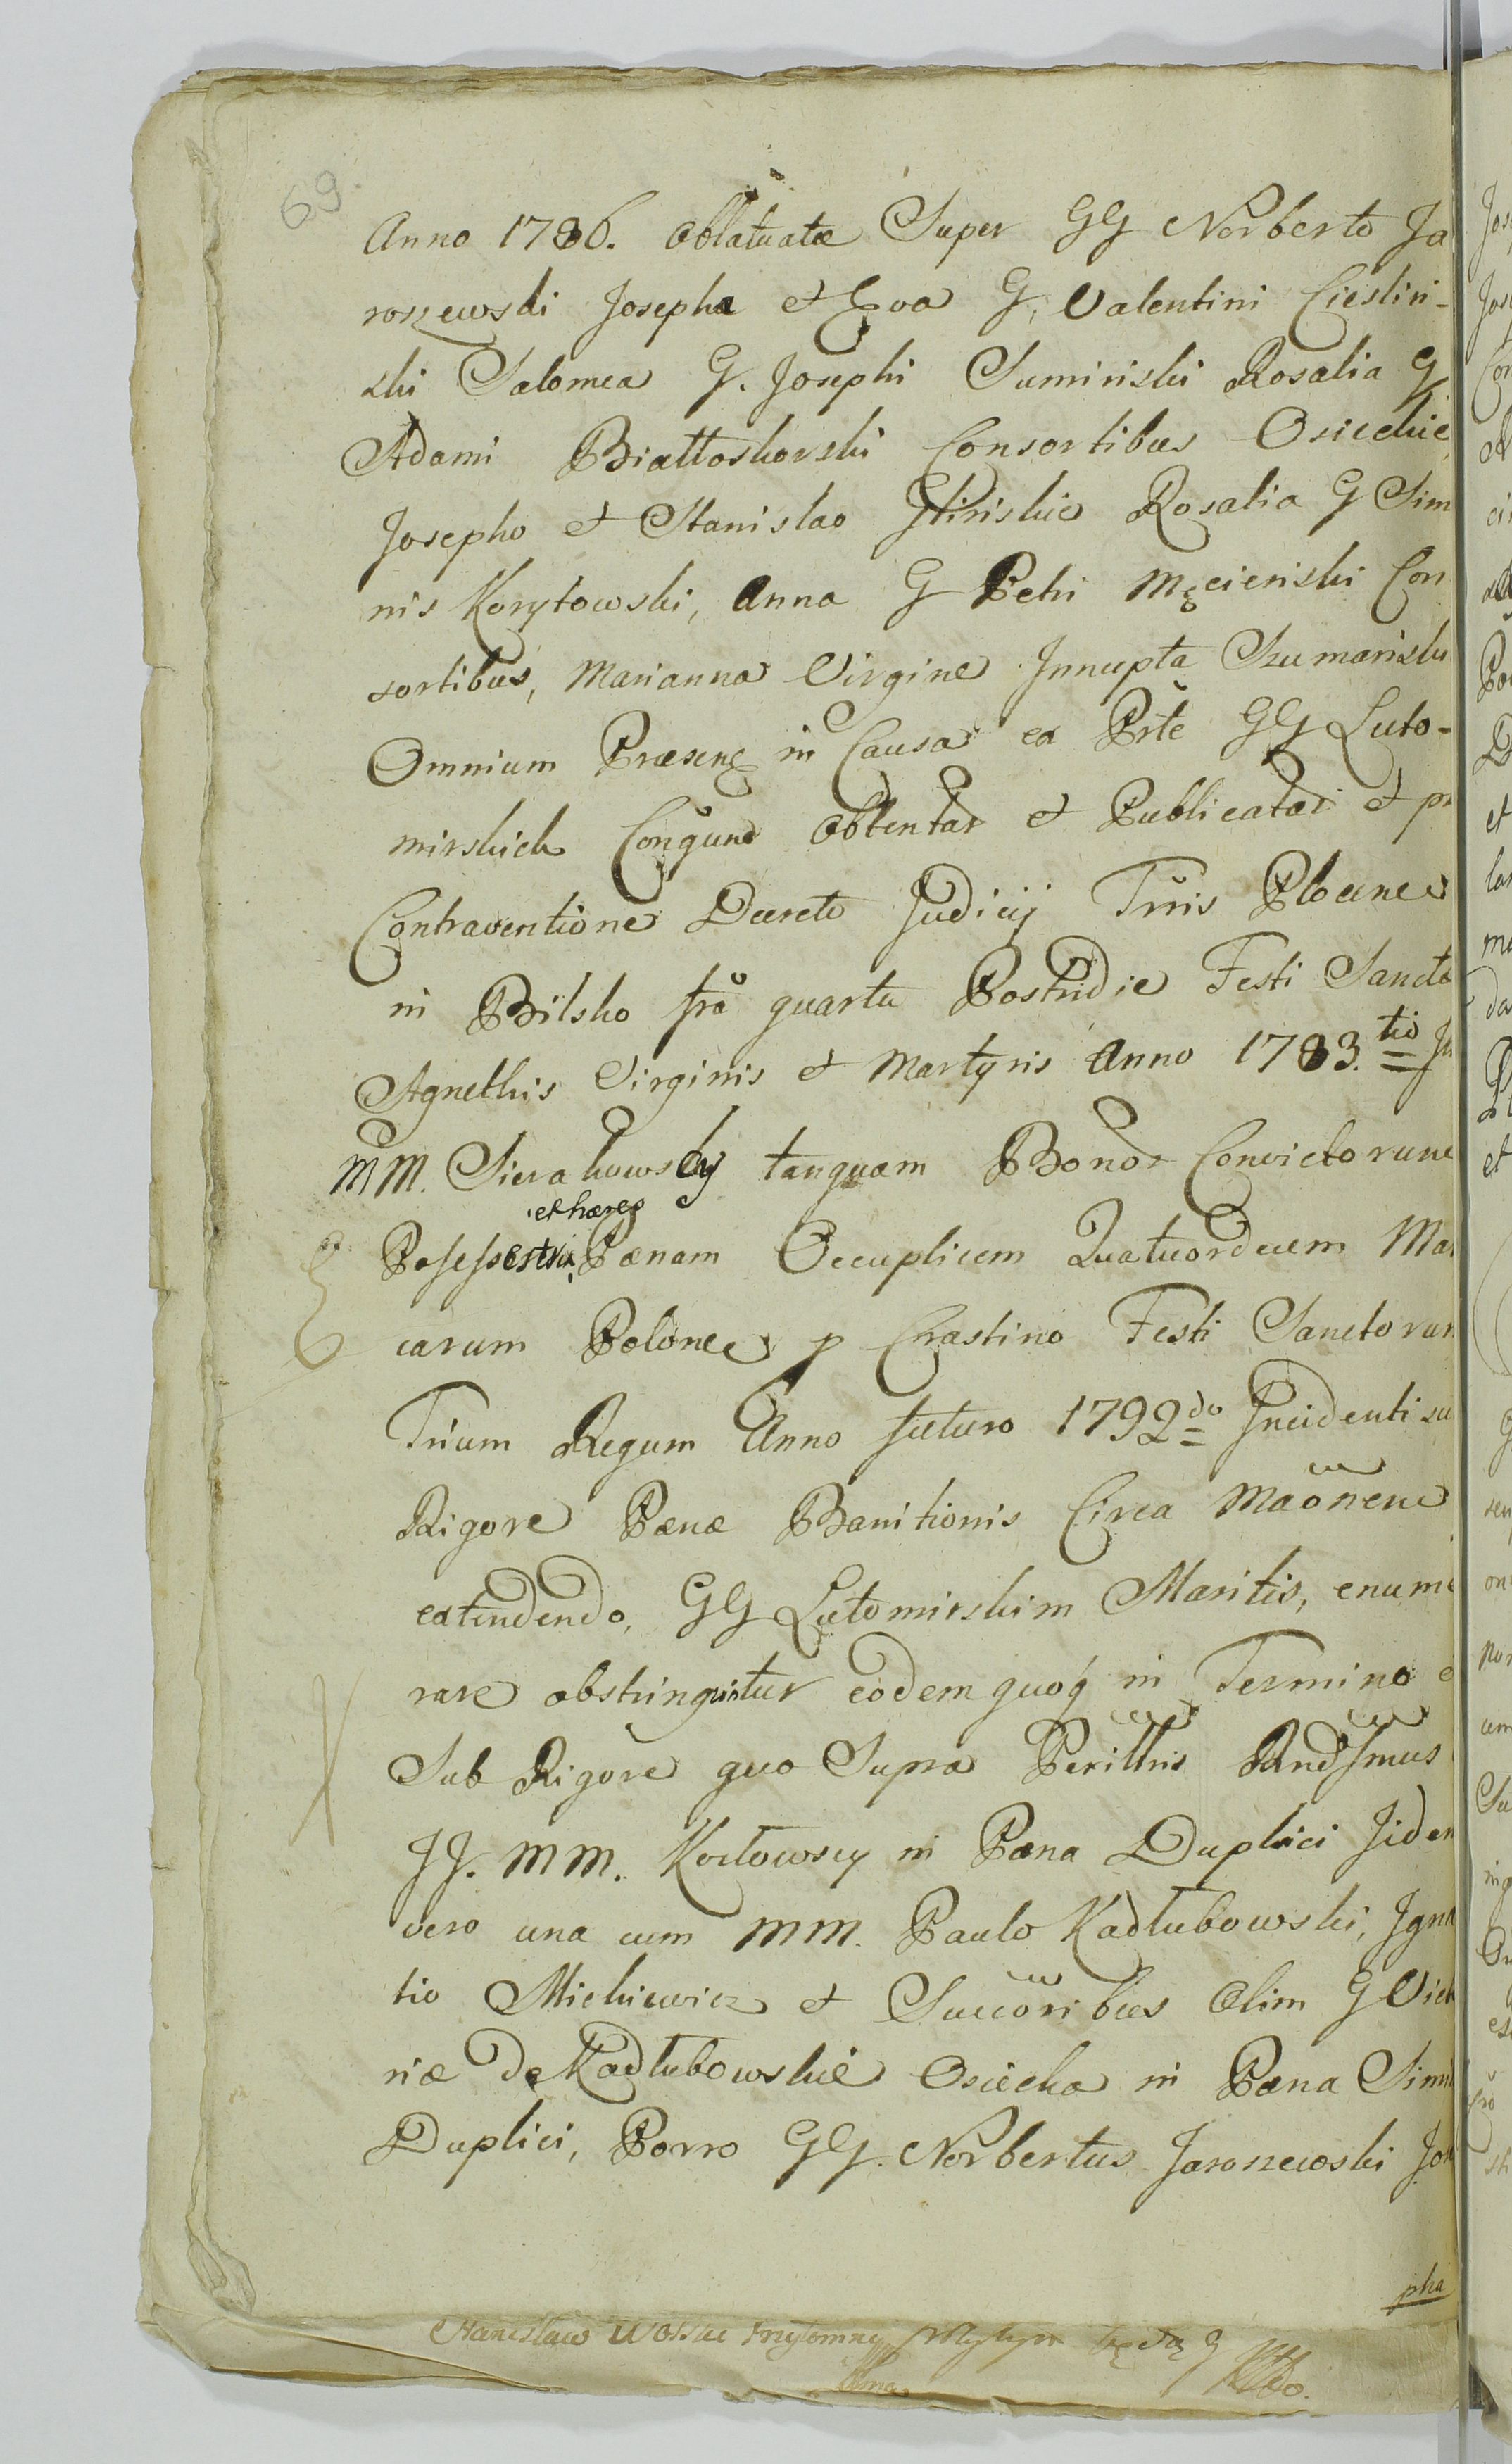 69.
Anno 1786. Oblatuatæ Super GG Norberto Ja
roszewski Josepha et Eva G. Valentini Cieslin-
ski Salomea G. Josephi Suminski Rosalia G
Adami Białłoskorski Consortibus Osieckie
Josepho et Stanislao Glinskie Rosalia G Sim
nis Korytowski, Anna G Petri Męcienski Con
sortibus, Marianna Virgine Innupta Szumansku
Omnium Præsen in Causa ex Prte GG Luto-
mirskich Conğund obtentar et Publicatar et pr
Contraventione Decreto Judicij Trris Plocene
in Bilsko fra quarta Postridie Festi Sanctæ
Agnethis Virginis et Martyris Anno 1783.tio In
MM. Sierakowscy tanquam Bonor Convictorum
et hæres
Possessestrix Pænam Occuplicem Quatuordecem Mar
carum Polone p Crastino Festi Sanctorum
Trium Regum Anno futuro 1792do Incidenti su
Rigore Pænæ Banitionis Circa Maönem
extendendo, GG Lutomirskim Maritis, enume
rare obstringuntur eodem quoq in Termino e
Sub Rigore quo Supra Perillris Rndssmus
JJ. MM. Kozłowscy in Pæna Duplici Jidem
vero una cum MM. Paulo Kadłubowski, Igna
tio Mickiewicz et Succoribus Olim G Victo
riæ de Kadłubowskie Osiecka in Pæna Simi
Duplici, Porro GG. Norbertus Jaroszewski Jose
pha
Stanisław Wolski